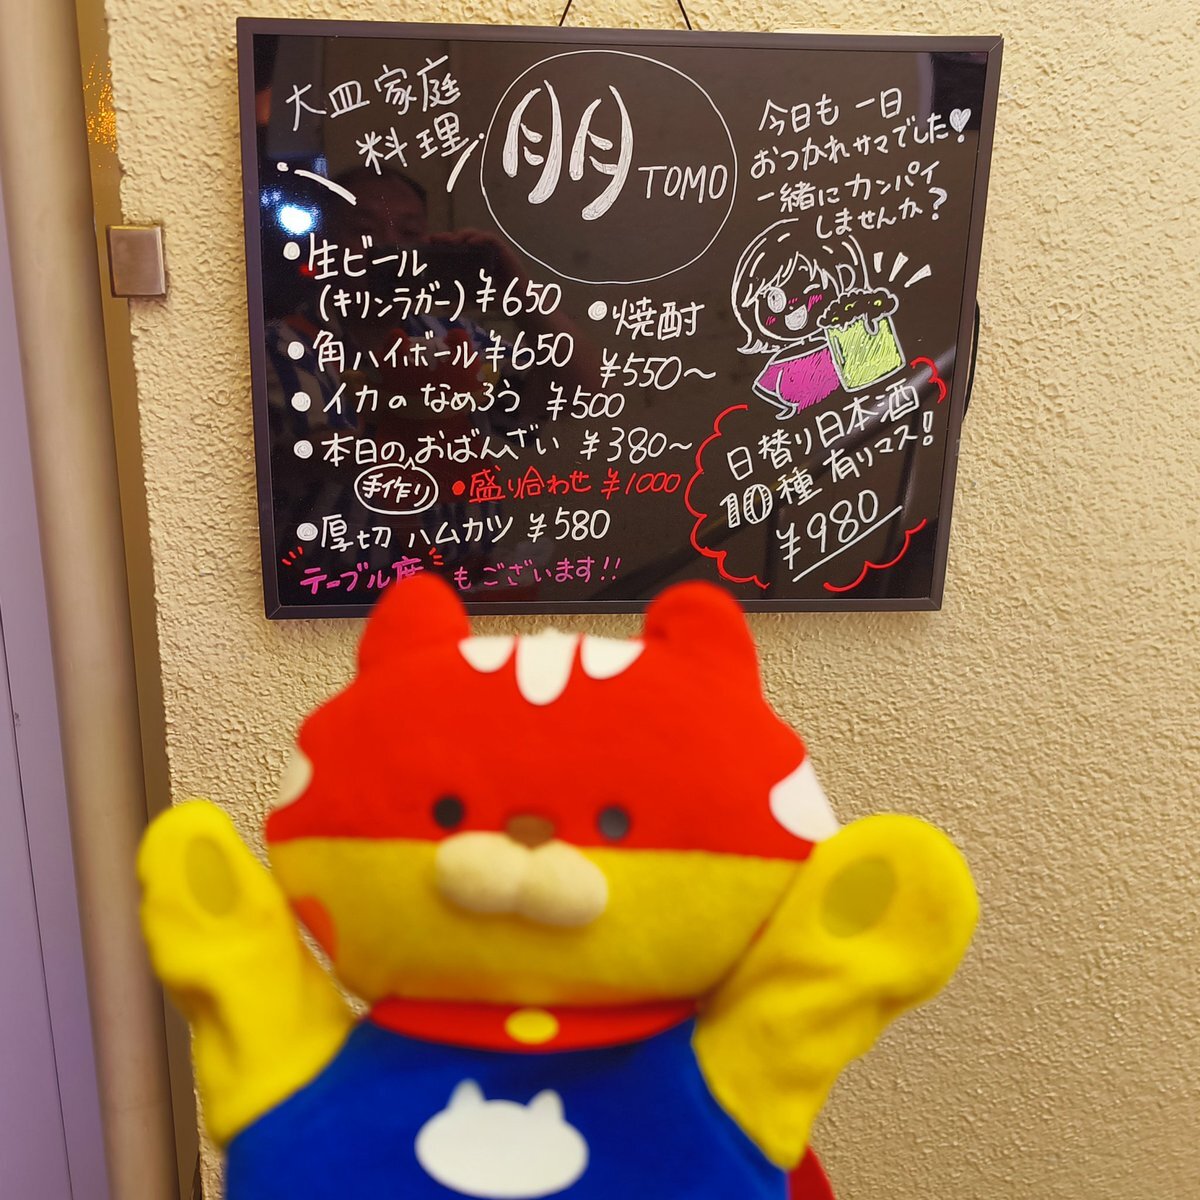 大皿家庭
料理
朋 TOMO
今日も一日
おつかれサマでした!
一緒にカンパイ
しませんか?
●生ビール
(キリンラガー)¥650
●角ハイボール¥650
●イカのなめろう ¥500
●本日のおばんざい ¥380〜
手作り
●盛り合わせ ¥1000
●厚切ハムカツ ¥580
テーブル席もございます!!
●焼酎
¥550〜
日替り日本酒
10種有りマス!
¥980